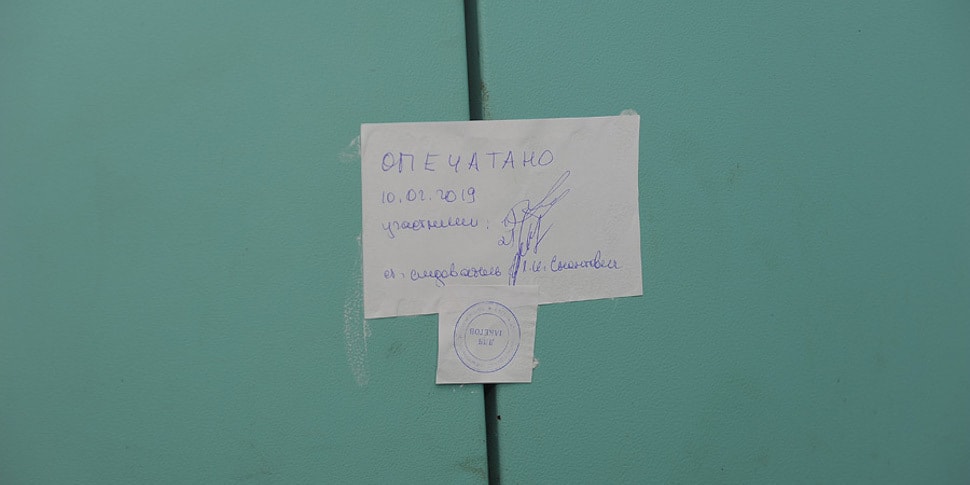 ОПЕЧАТАНО
10.02.2019
участники:
1)
2)
ст. следователь
ДЛЯ
ПАКЕТОВ